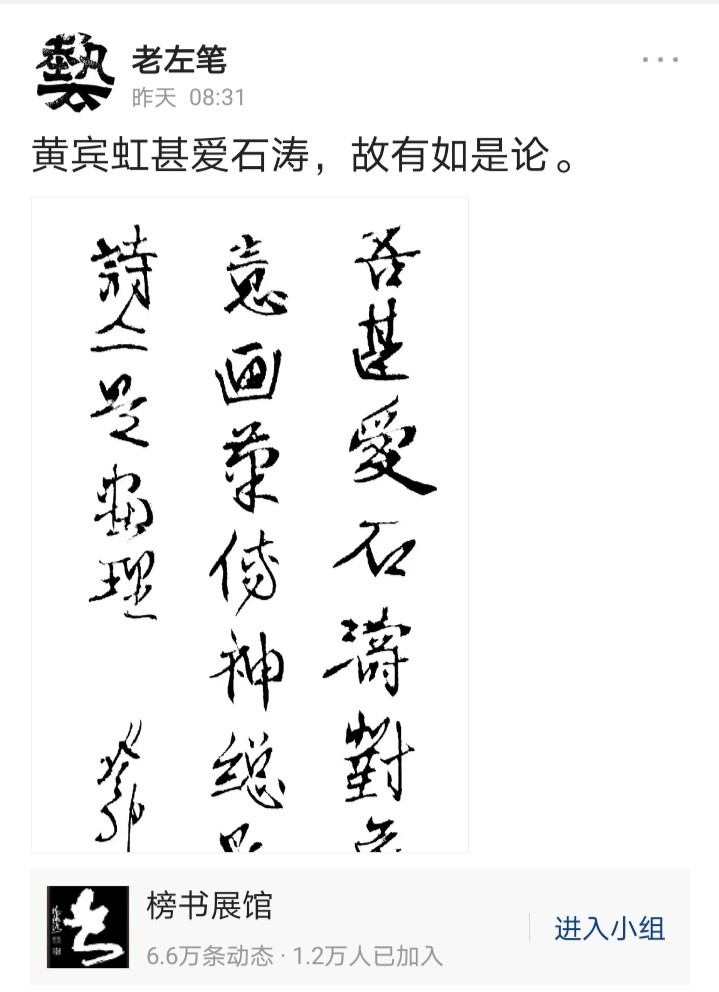 藝
老左笔
昨天 08:31
黄宾虹甚爱石涛，故有如是论。
吾甚愛石濤對
意画筆傳神總是
詩是畫理
癸卯
榜书展馆
6.6万条动态 · 1.2万人已加入
进入小组